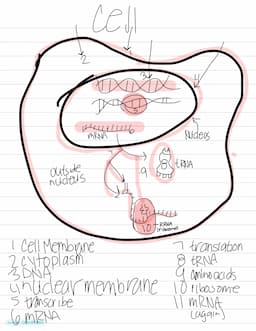 Cell
1
2
3
4
5
mRNA 6
Nucleus
7
outside
nucleus
9
8
tRNA
10
1 Cell Membrane
2 cytoplasm
3 DNA
4 nuclear membrane
5 transcribe
6 mRNA
7 translation
8 tRNA
9 amino acids
10 ribosome
11 mRNA
(again)